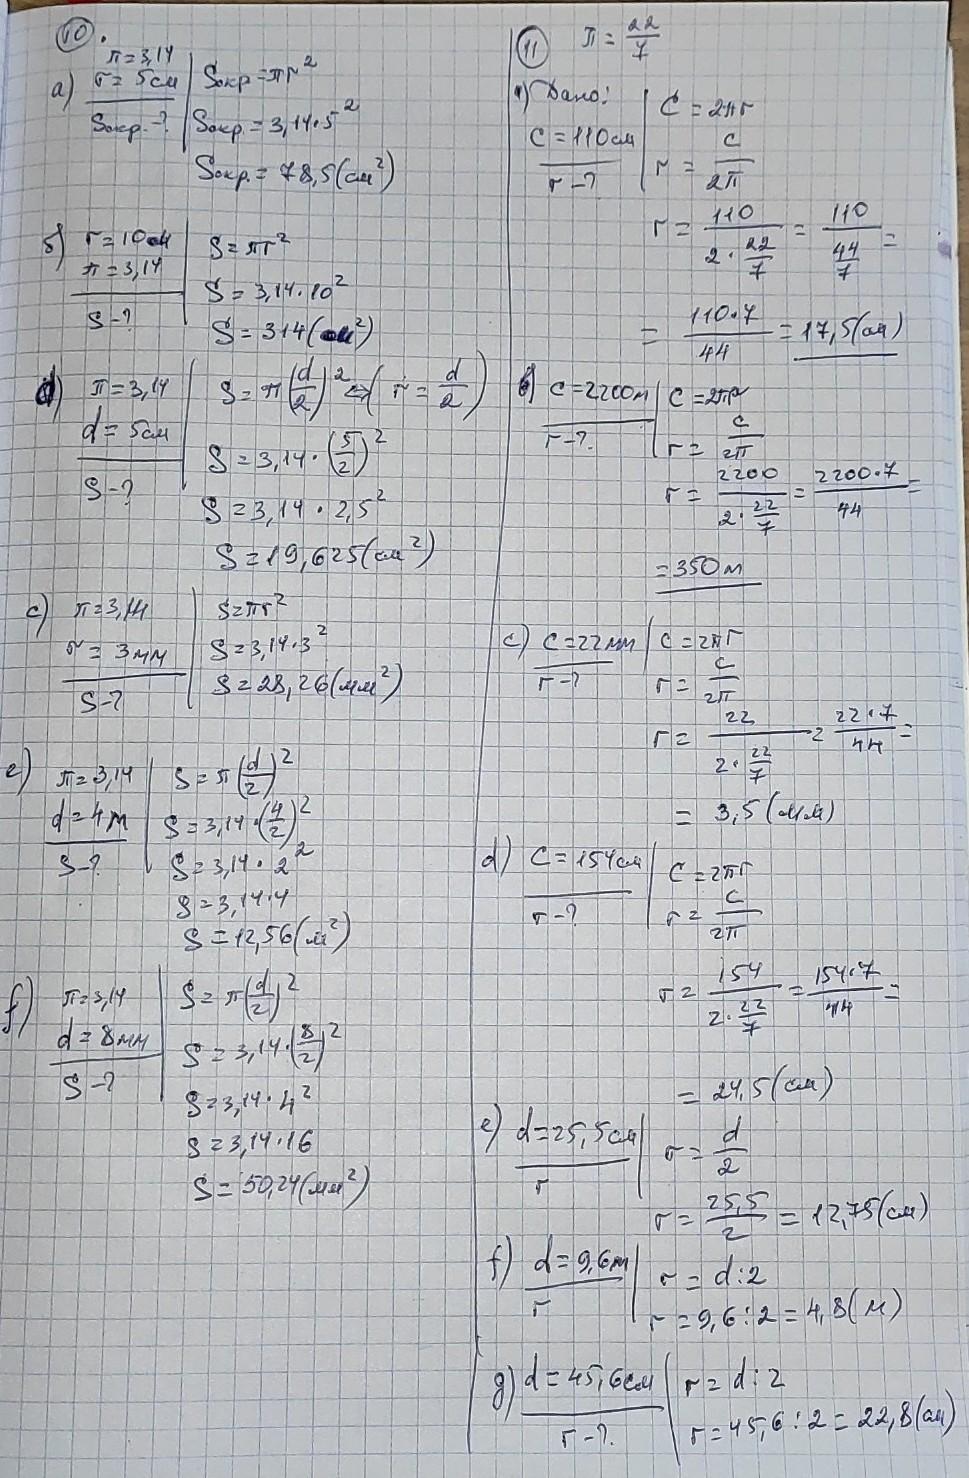 10.
π=3,14
а) r=5см | Sокр=πr²
Sокр.-? | Sокр.=3,14·5²
Sокр.=78,5(см²)
б) r=10см | S=πr²
π=3,14 | S=3,14·10²
S-? | S=314(см²)
d) π=3,14 | S=π(d/2)² ⇔ (r=d/2)
d=5см | S=3,14·(5/2)²
S-? | S=3,14·2,5²
S=19,625(см²)
c) π=3,14 | S=πr²
r=3мм | S=3,14·3²
S-? | S=28,26(мм²)
e) π=3,14 | S=π(d/2)²
d=4м | S=3,14·(4/2)²
S-? | S=3,14·2²
S=3,14·4
S=12,56(м²)
f) π=3,14 | S=π(d/2)²
d=8мм | S=3,14·(8/2)²
S-? | S=3,14·4²
S=3,14·16
S=50,24(мм²)
11 π=22/7
а) Дано: | C=2πr
C=110см | r=C/2π
r-?
r=110/(2·22/7)=110/(44/7)=
=110·7/44=17,5(см)
б) C=2200м | C=2πr
r-? | r=C/2π
r=2200/(2·22/7)=2200·7/44=
=350м
c) C=22мм | C=2πr
r-? | r=C/2π
r=22/(2·22/7)=22·7/44=
=3,5(мм)
d) C=154см | C=2πr
r-? | r=C/2π
r=154/(2·22/7)=154·7/44=
=24,5(см)
e) d=25,5см | r=d/2
r | r=25,5/2=12,75(см)
f) d=9,6м | r=d:2
r | r=9,6:2=4,8(м)
g) d=45,6см | r=d:2
r-? | r=45,6:2=22,8(см)